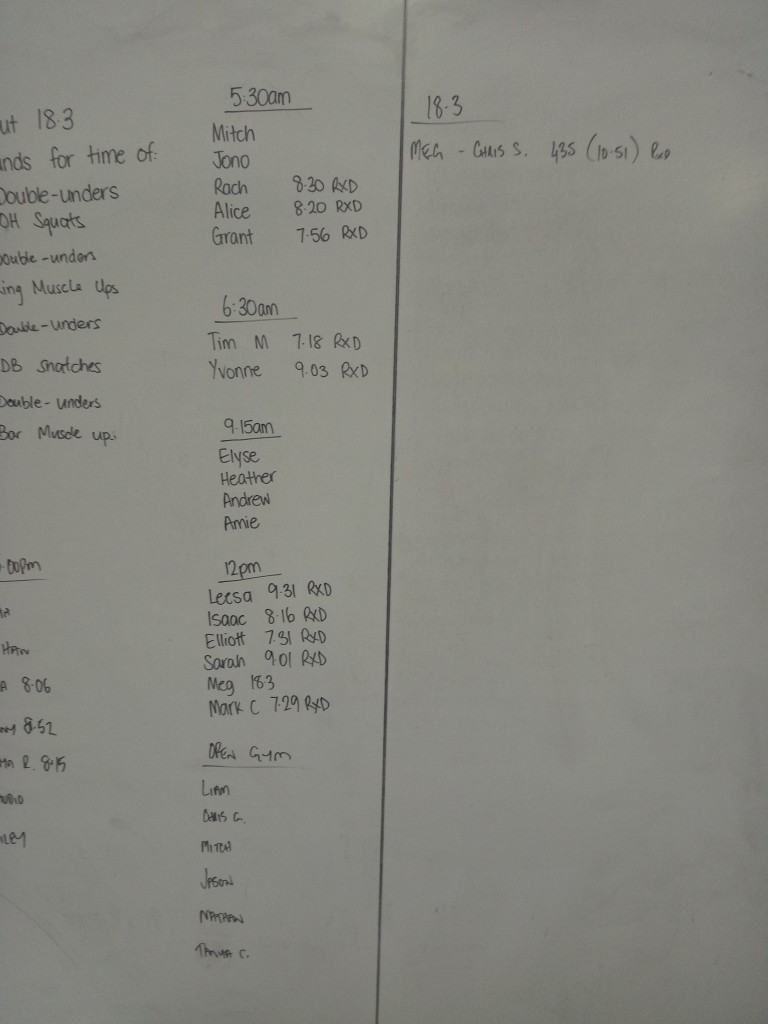 18.3
for time of:
Double-unders
OH Squats
Double-unders
Muscle Ups
Double-unders
DB Snatches
Double-unders
Bar Muscle up
00pm
HAN
A 8:06
8:52
R. 8:15
5:30am
Mitch
Jono
Rach 8:30 RXD
Alice 8:20 RXD
Grant 7:56 RXD
6:30am
Tim M 7:18 RXD
Yvonne 9.03 RXD
9.15am
Elyse
Heather
Andrew
Amie
12pm
Leesa 9.31 RXD
Isaac 8.16 RXD
Elliott 7.31 RXD
Sarah 9.01 RXD
Meg 18.3
Mark C 7.29 RXD
OPEN GYM
LIAM
CHRIS G.
MITCH
JASON
NATHAN
TANYA C.
18.3
MEG - CHRIS S. 435 (10.51) RXD